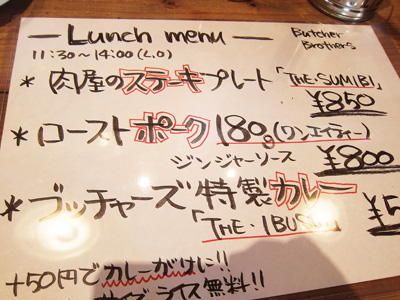 — Lunch menu — Butcher Brothers
11:30~14:00(L.O)
* 肉屋のステーキプレート「THE・SUMIBI」
¥850
* ローストポーク 180g(ワンエイティー)
ジンジャーソース ¥800
* ブッチャーズ特製カレー
「THE・IBUSHI」 ¥5
+50円でカレーがけに!!
サイズ ライス無料!!